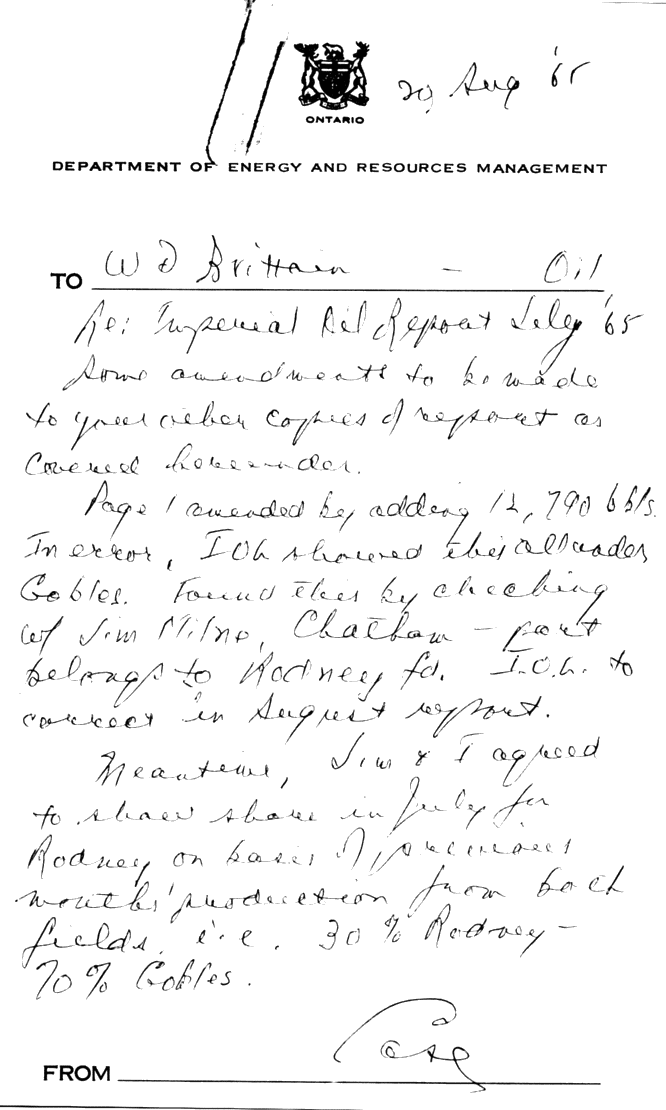 20 Aug '65
ONTARIO
DEPARTMENT OF ENERGY AND RESOURCES MANAGEMENT
TO W D Brittain - Oil
Re: Imperial Oil Report July '65
Some amendments to be made
to your other copies of report as
covered hereunder.
Page 1 amended by adding 12,790 bbls.
In error, IOL showed this all under
Gobles. Found this by checking
w/ Jim Milne, Chatham - part
belongs to Rodney fd. I.O.L. to
correct in August report.
Meantime, Jim & I agreed
to show share in July for
Rodney on basis of previous
months' production from both
fields, i.e. 30% Rodney -
70% Gobles.
FROM